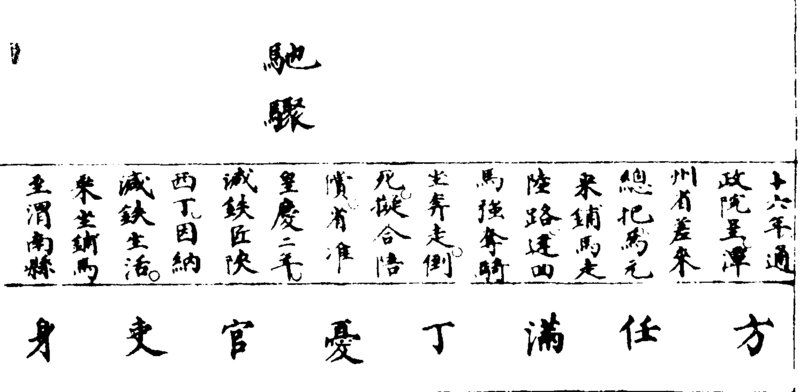 馳驟
十六年通
政院呈潭
州省差來
總把馬元
乘鋪馬走
陸路達四
馬強奪騎
坐奔走倒
死擬合陪
償省准
皇慶二年
減鉄匠陝
西丁因納
減鉄生活
乘坐鋪馬
至渭南縣
方任滿丁憂官吏身